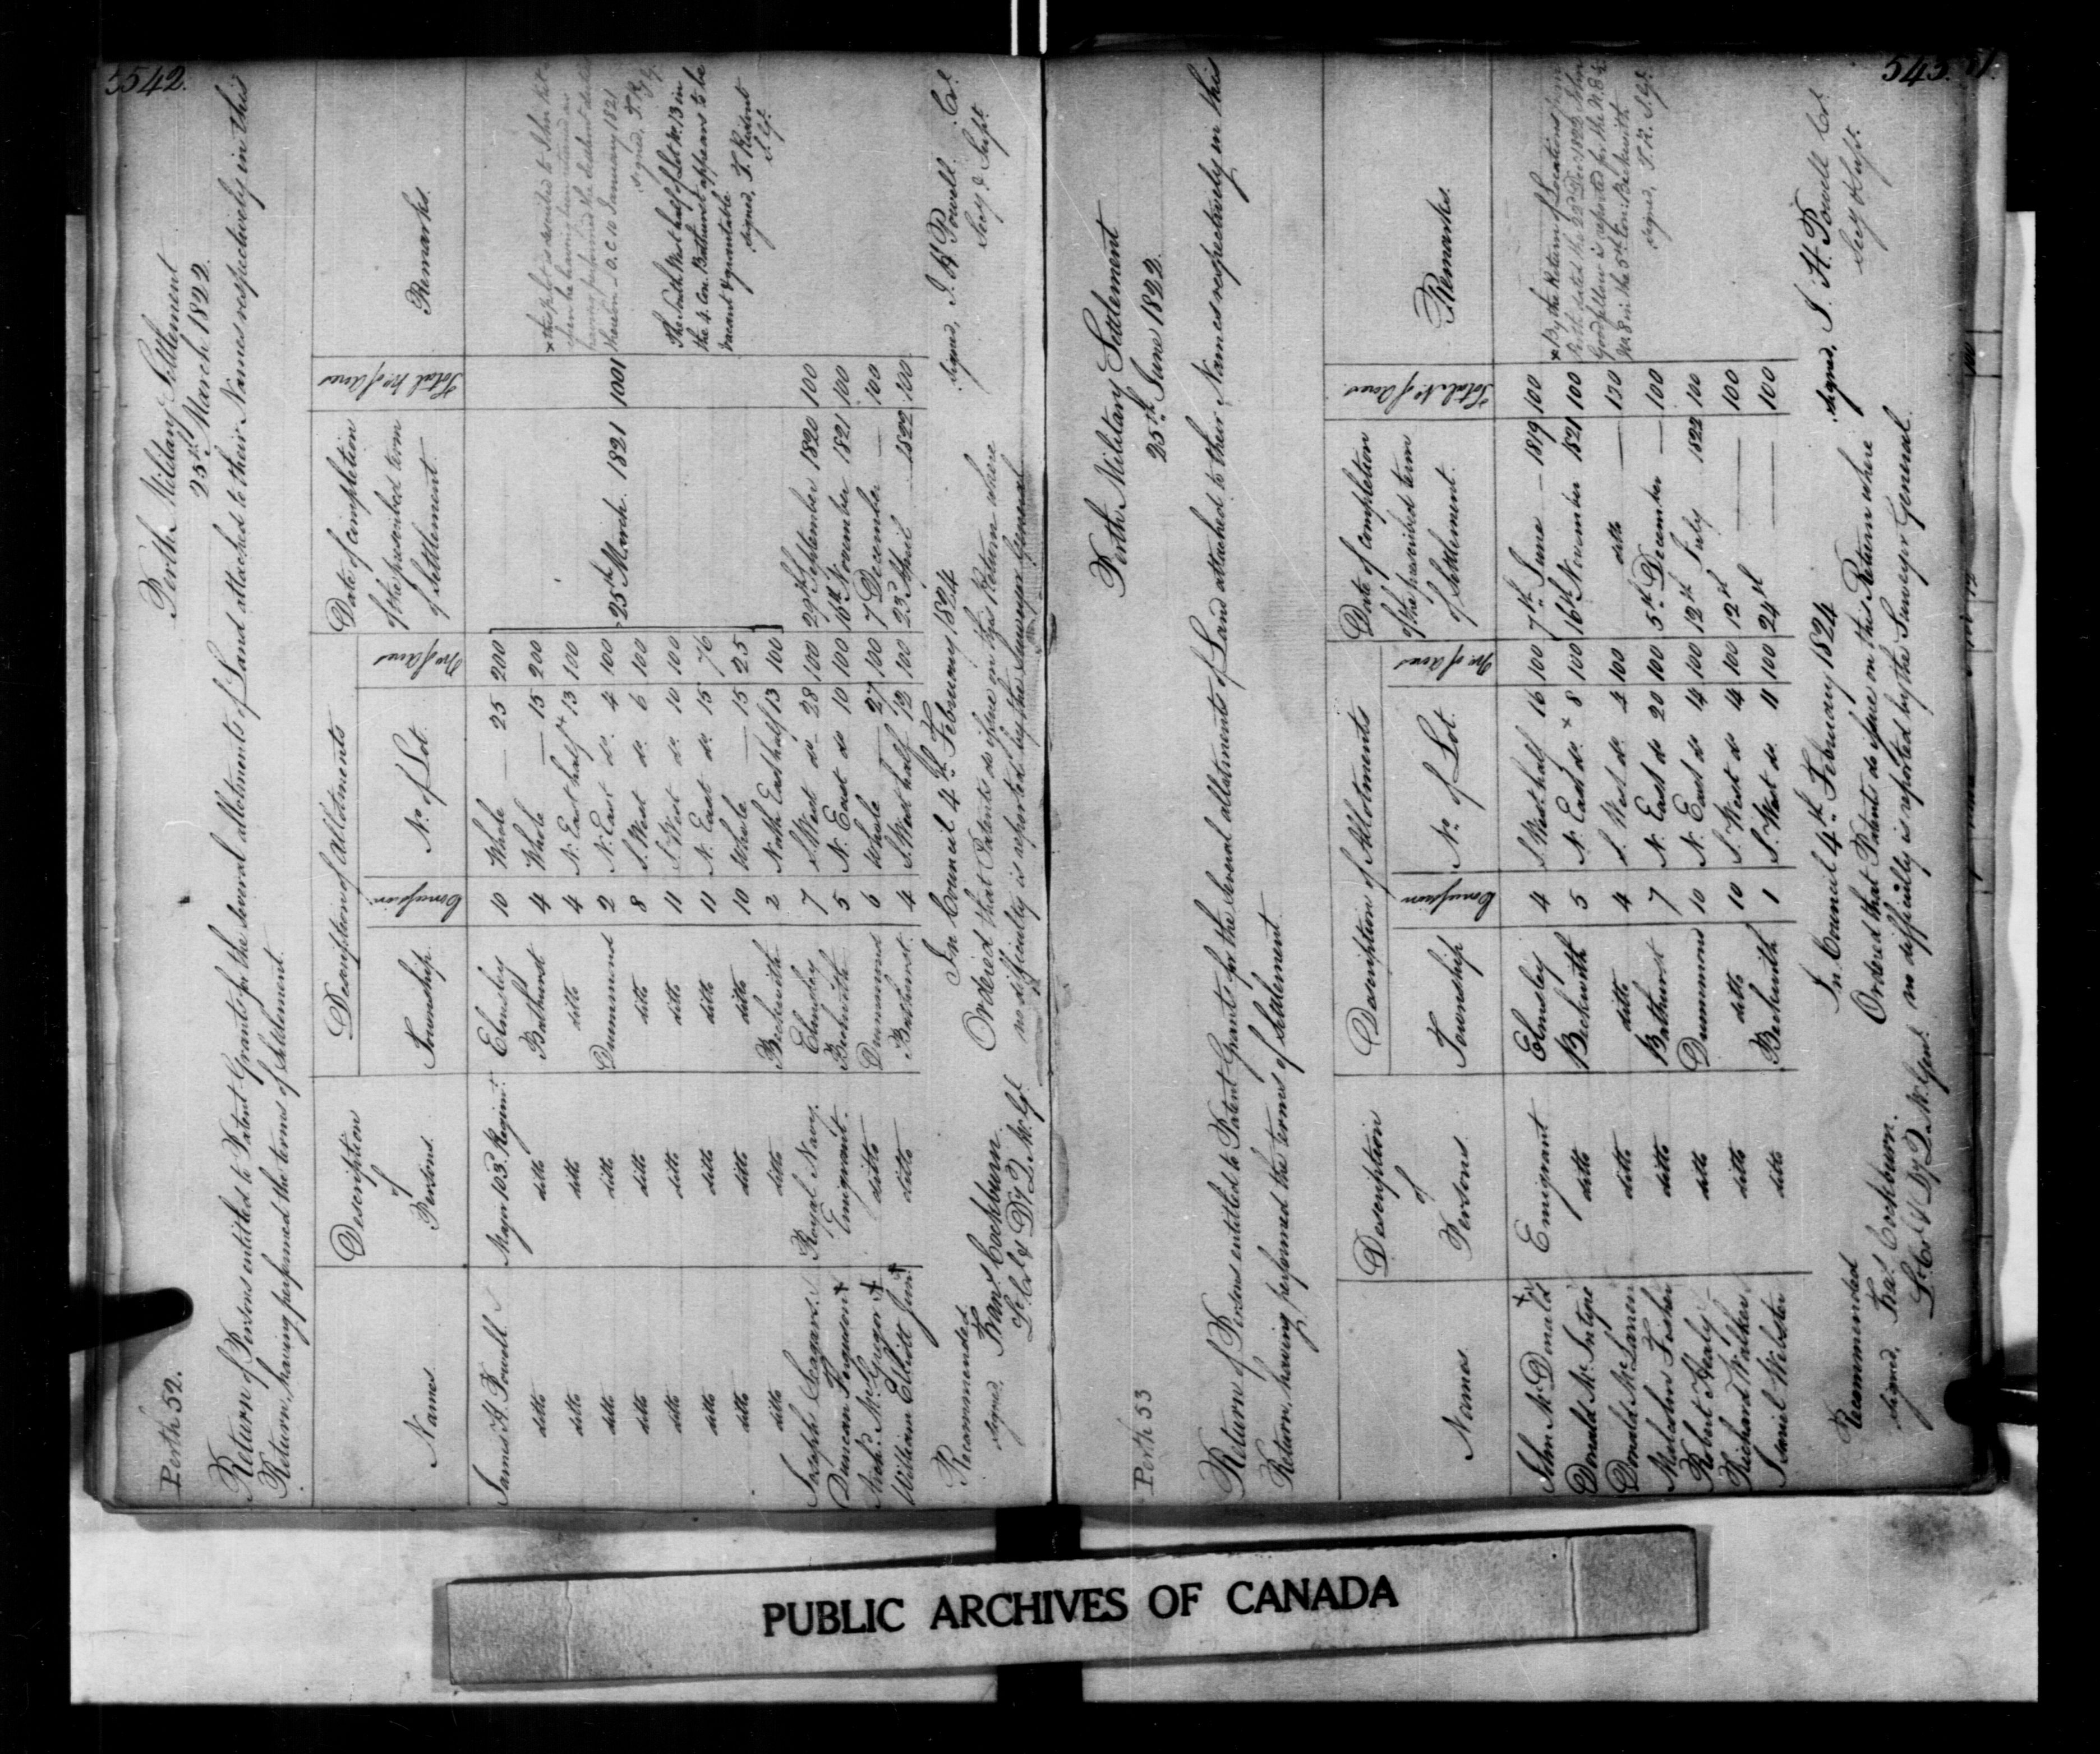 542.
Perth 52.
Perth Military Settlement
25th March 1822.
Return of Persons entitled to Patent Grants for the several allotments of Land attached to their Names respectively in this
Return, having performed the terms of Settlement.
Names. Description of Persons. Description of Allotments Date of completion of the prescribed term of Settlement. Total No of Acres Remarks.
Township. Concession No. of Lot. No of Acres
James H. Powell Major 103. Regimt. Elmsley 10 Whole — 25 200
ditto ditto Bathurst 4 Whole — 15 200
ditto ditto ditto 4 N. East half x 13 100
ditto ditto Drummond 2 N. East do. 4 100
ditto ditto ditto 8 S. West do. 6 100
ditto ditto ditto 11 S. West do. 10 100
ditto ditto ditto 11 N. East do. 15 76
ditto ditto ditto 10 Whole — 15 25
ditto ditto Beckwith 2 North East half 13 100
25th March 1821 1001
Joseph Royal Navy. Elmsley 7 S. West do 28 100 29th September 1820 100
Duncan Ferguson Emigrant. Beckwith 5 N. East do 10 100 16th November 1821 100
Archd. McGregor ditto Drummond 6 Whole — 27 100 7 December — 100
William Elliott Junr. ditto Bathurst 4 S. West half 12 100 23 April 1822 100
x this lot is described to John
having performed the settlement duties
thereon O.C. 10 January 1821
signed, T. R.
The South West half of Lot No. 13 in
the 4. Con. Bathurst appears to be
vacant & grantable
signed, T. Ridout
S. Gl.
Recommended
signed, Frans. Cockburn
Lt. Col. & Dy. Q. M. Gl.
In Council 4th February 1824
Ordered that Patents do issue on this Return where
no difficulty is reported by the Surveyor General
signed, J. H. Powell. Col.
Secy. & Supt.
543.
Perth 53
Perth Military Settlement
25th June 1822.
Return of Persons entitled to Patent Grants for the several allotments of Land attached to their Names respectively in this
Return, having performed the terms of Settlement
Names Description of Persons. Description of Allotments Date of completion of the prescribed term of Settlement. Total No. of Acres Remarks.
Township Concession No. of Lot. No. of Acres
John McDonald Emigrant Elmsley 4 S. West half 16 100 7th June — 1819 100
Donald McIntyre ditto Beckwith 5 N. East do. x 8 100 16th November 1821 100
Donald McLaren ditto ditto 4 S. West do 4 100 ditto — 100
Malcolm Fisher ditto Bathurst 7 N. East do 20 100 5th December — 100
Robert Healy ditto Drummond 10 N. East do 14 100 12th July 1822 100
Richard Walker ditto ditto 10 S. West do 14 100 12th — 100
Daniel Webster ditto Beckwith 1 S. West do. 11 100 24th — 100
x By the Return of Locations from
Perth dated the 23 Decr 1822 John
Goodfellow is reported for the N.E. ½
No 8 in the 5th Con. Beckwith
signed, T. R. S. Gl.
Recommended
signed, Fras. Cockburn.
Lt. Col. & Dy. Q. M. Genl.
In Council 4th February 1824
Ordered that Patents do issue on this Return where
no difficulty is reported by the Surveyor General
signed, J. H. Powell Col.
Secy & Supt.
PUBLIC ARCHIVES OF CANADA